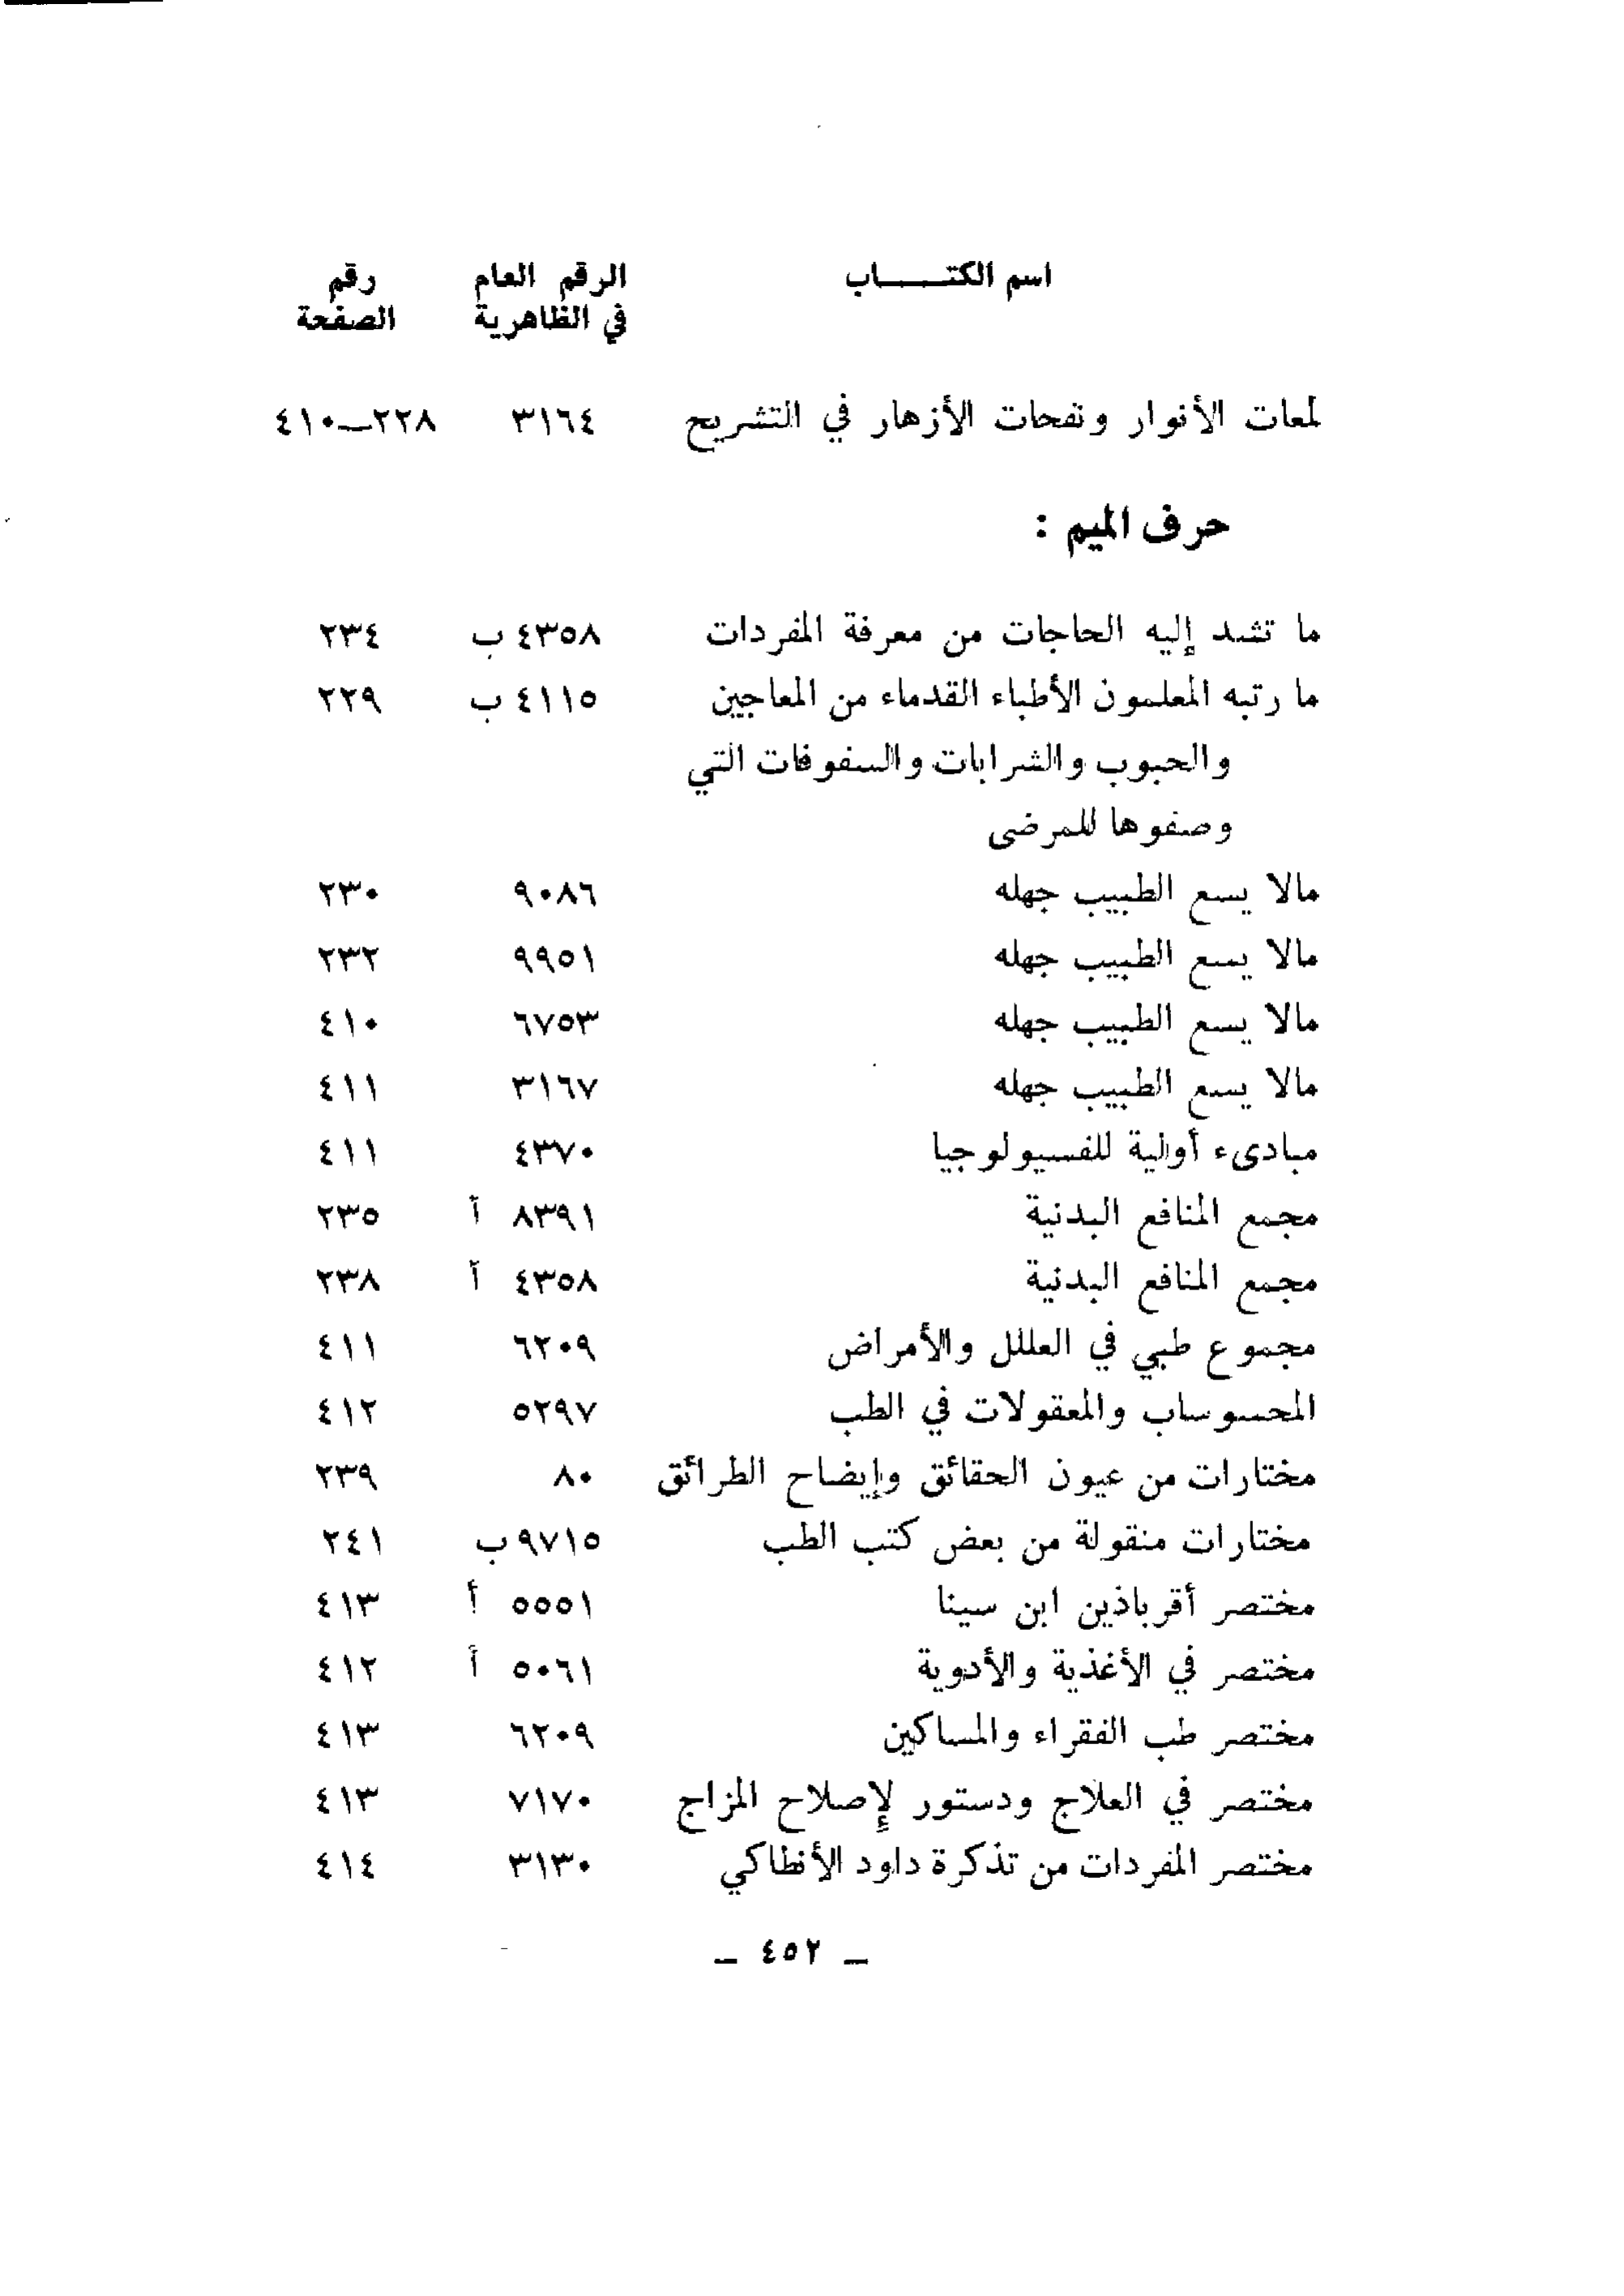 اسم الكتـــــاب الرقم العام رقم
في الظاهرية الصفحة
لمعات الأنوار ونفحات الأزهار في التشريح ٣١٦٤ ٢٢٨ــ٤١٠
حرف الميم :
ما تشد إليه الحاجات من معرفة المفردات ٤٣٥٨ ب ٢٣٤
ما رتبه المعلمون الأطباء القدماء من المعاجين ٤١١٥ ب ٢٢٩
والحبوب والشرابات والسفوفات التي
وصفوها للمرضى
مالا يسع الطبيب جهله ٩٠٨٦ ٢٣٠
مالا يسع الطبيب جهله ٩٩٥١ ٢٣٢
مالا يسع الطبيب جهله ٦٧٥٣ ٤١٠
مالا يسع الطبيب جهله ٣١٦٧ ٤١١
مبادىء أولية للفسيولوجيا ٤٣٧٠ ٤١١
مجمع المنافع البدنية ٨٣٩١ أ ٢٣٥
مجمع المنافع البدنية ٤٣٥٨ أ ٢٣٨
مجموع طبي في العللل والأمراض ٦٢٠٩ ٤١١
المحسوساب والمعقولات في الطب ٥٢٩٧ ٤١٢
مختارات من عيون الحقائق وإيضاح الطرائق ٨٠ ٢٣٩
مختارات منقولة من بعض كتب الطب ٩٧١٥ ب ٢٤١
مختصر أقرباذين ابن سينا ٥٥٥١ أ ٤١٣
مختصر في الأغذية والأدوية ٥٠٦١ أ ٤١٢
مختصر طب الفقراء والمساكين ٦٢٠٩ ٤١٣
مختصر في العلاج ودستور لإصلاح المزاج ٧١٧٠ ٤١٣
مختصر المفردات من تذكرة داود الأنطاكي ٣١٣٠ ٤١٤
ــ ٤٥٢ ــ